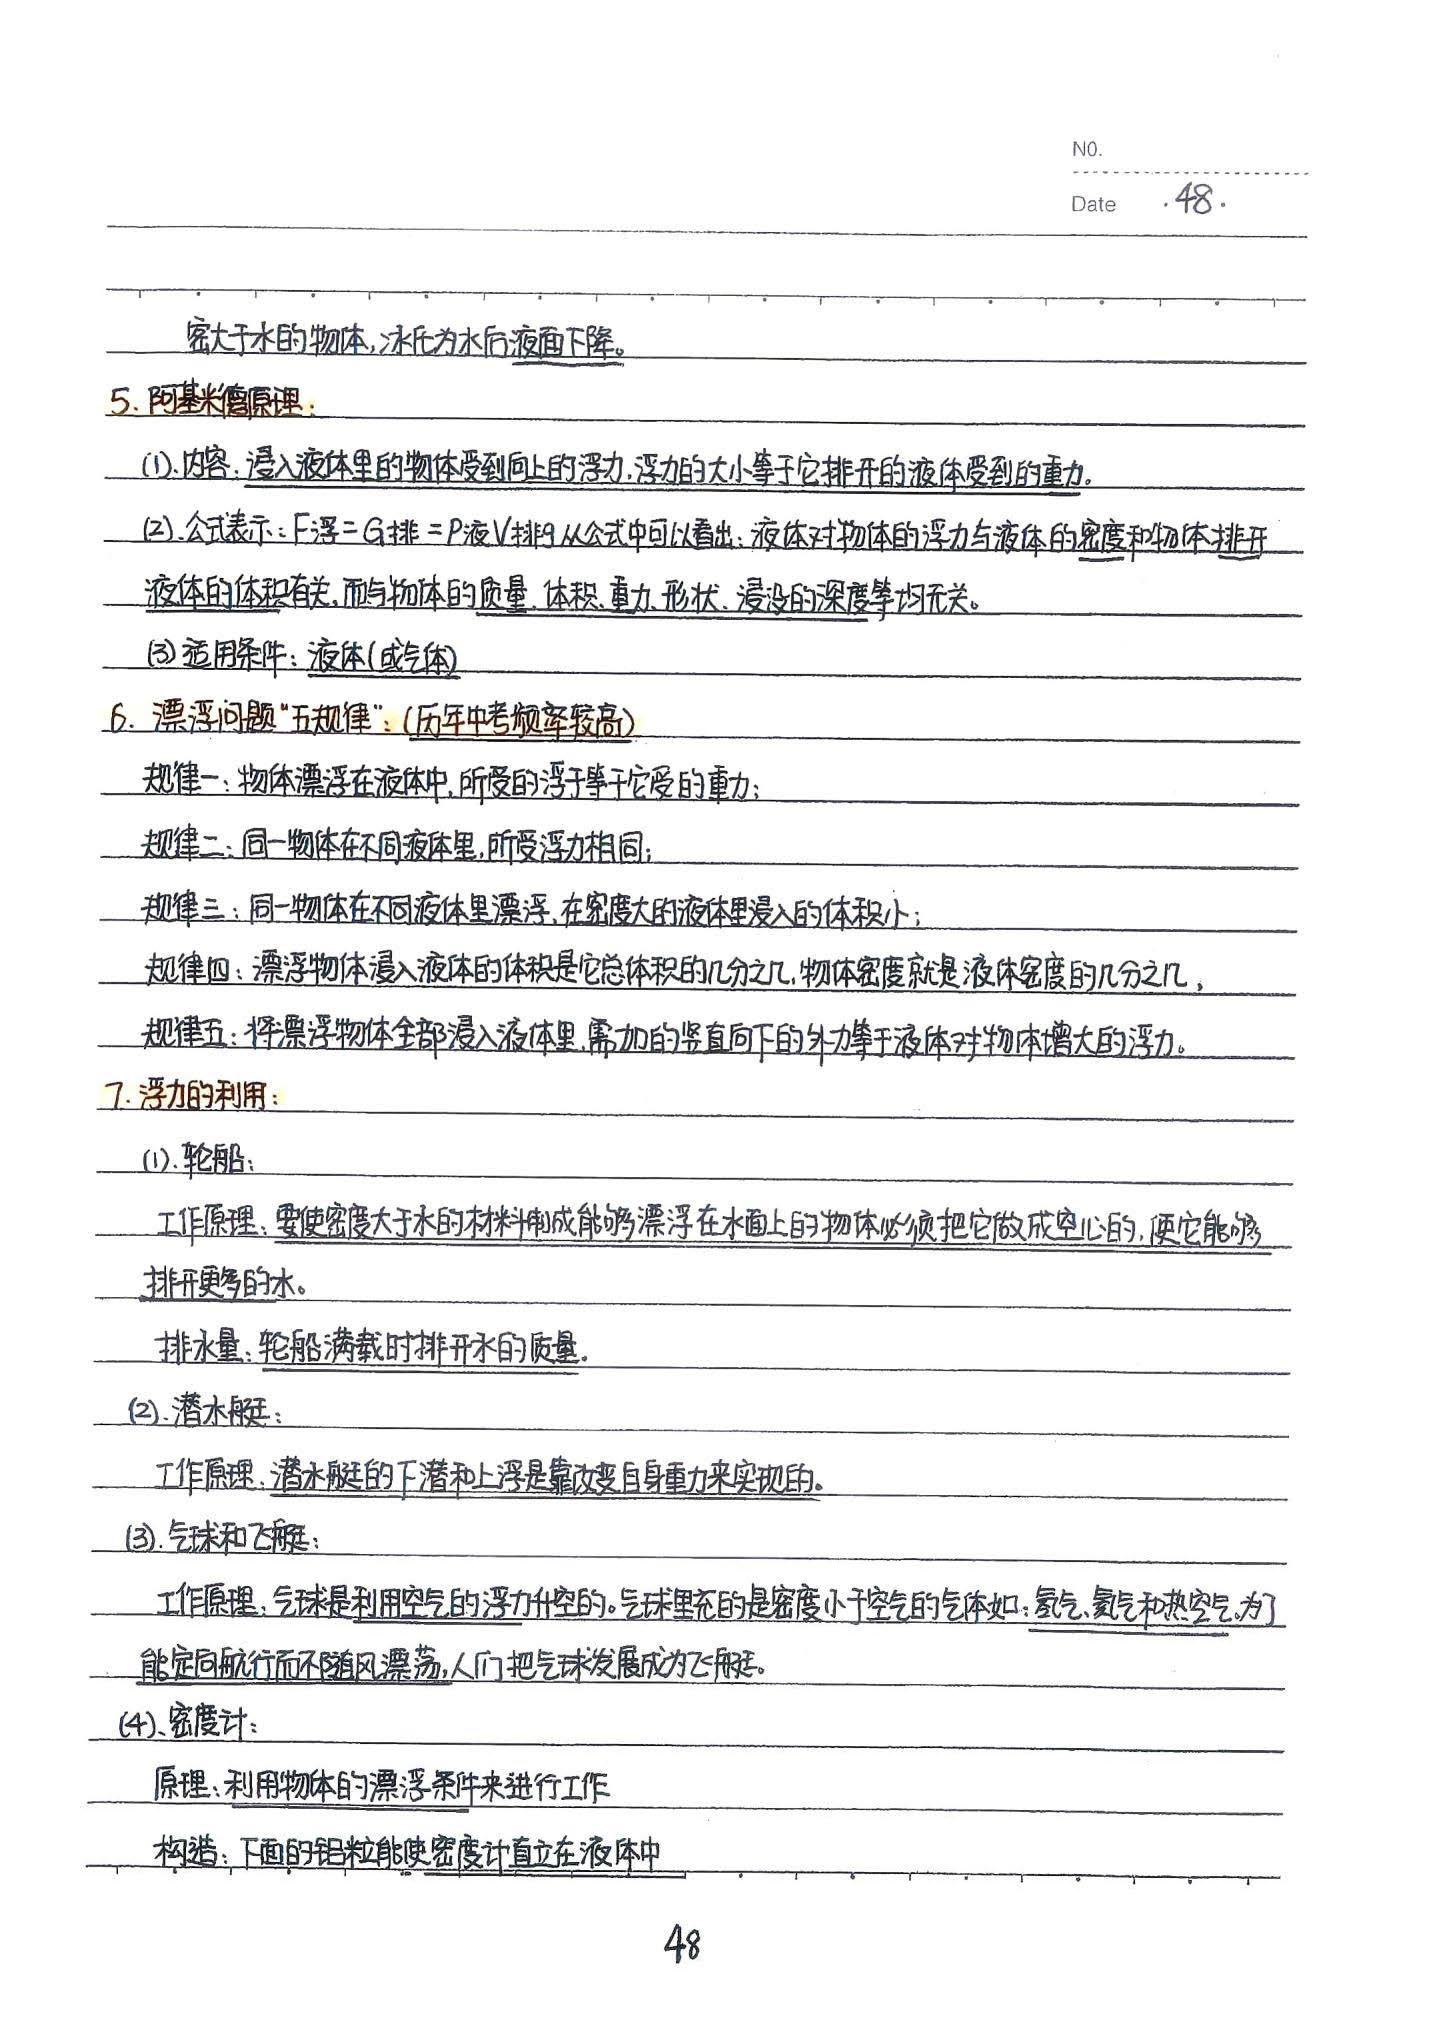 NO.
Date ·48·
密大于水的物体,冰化为水后液面下降。
5. 阿基米德原理:
(1).内容:浸入液体里的物体受到向上的浮力,浮力的大小等于它排开的液体受到的重力.
(2).公式表示:F浮=G排=P液V排g从公式中可以看出:液体对物体的浮力与液体的密度和物体排开
液体的体积有关,而与物体的质量、体积、重力、形状、浸没的深度等均无关。
(3)适用条件:液体(或气体)
6. 漂浮问题“五规律”:(历年中考频率较高)
规律一:物体漂浮在液体中,所受的浮于等于它受的重力;
规律二:同一物体在不同液体里,所受浮力相同;
规律三:同一物体在不同液体里漂浮,在密度大的液体里浸入的体积小;
规律四:漂浮物体浸入液体的体积是它总体积的几分之几,物体密度就是液体密度的几分之几,
规律五:将漂浮物体全部浸入液体里,需加的竖直向下的外力等于液体对物体增大的浮力。
7. 浮力的利用:
(1).轮船:
工作原理:要使密度大于水的材料制成能够漂浮在水面上的物体必须把它做成空心的,使它能够
排开更多的水。
排水量:轮船满载时排开水的质量.
(2).潜水艇:
工作原理:潜水艇的下潜和上浮是靠改变自身重力来实现的。
(3).气球和飞艇:
工作原理:气球是利用空气的浮力升空的。气球里充的是密度小于空气的气体如:氢气、氦气和热空气。为了
能定向航行而不随风漂荡,人们把气球发展成为飞艇。
(4)、密度计:
原理:利用物体的漂浮条件来进行工作
构造:下面的铝粒能使密度计直立在液体中
48